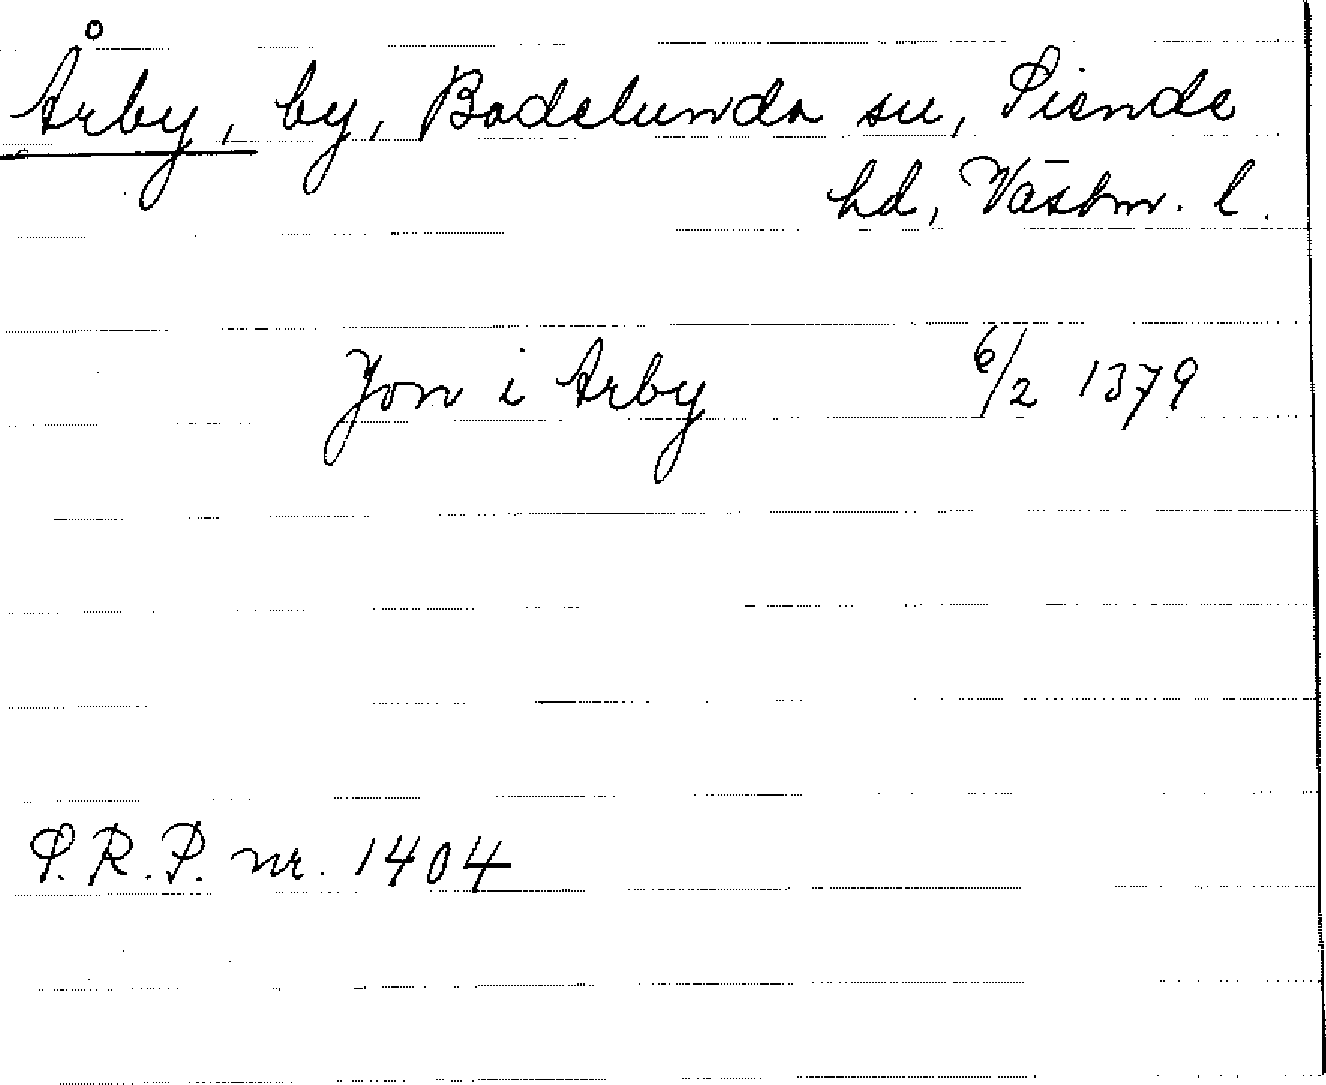 Årby, by, Badelunda sn, Siende
hd, Västm. l.
Jon i Arby 6/2 1379
S.R.P. nr. 1404